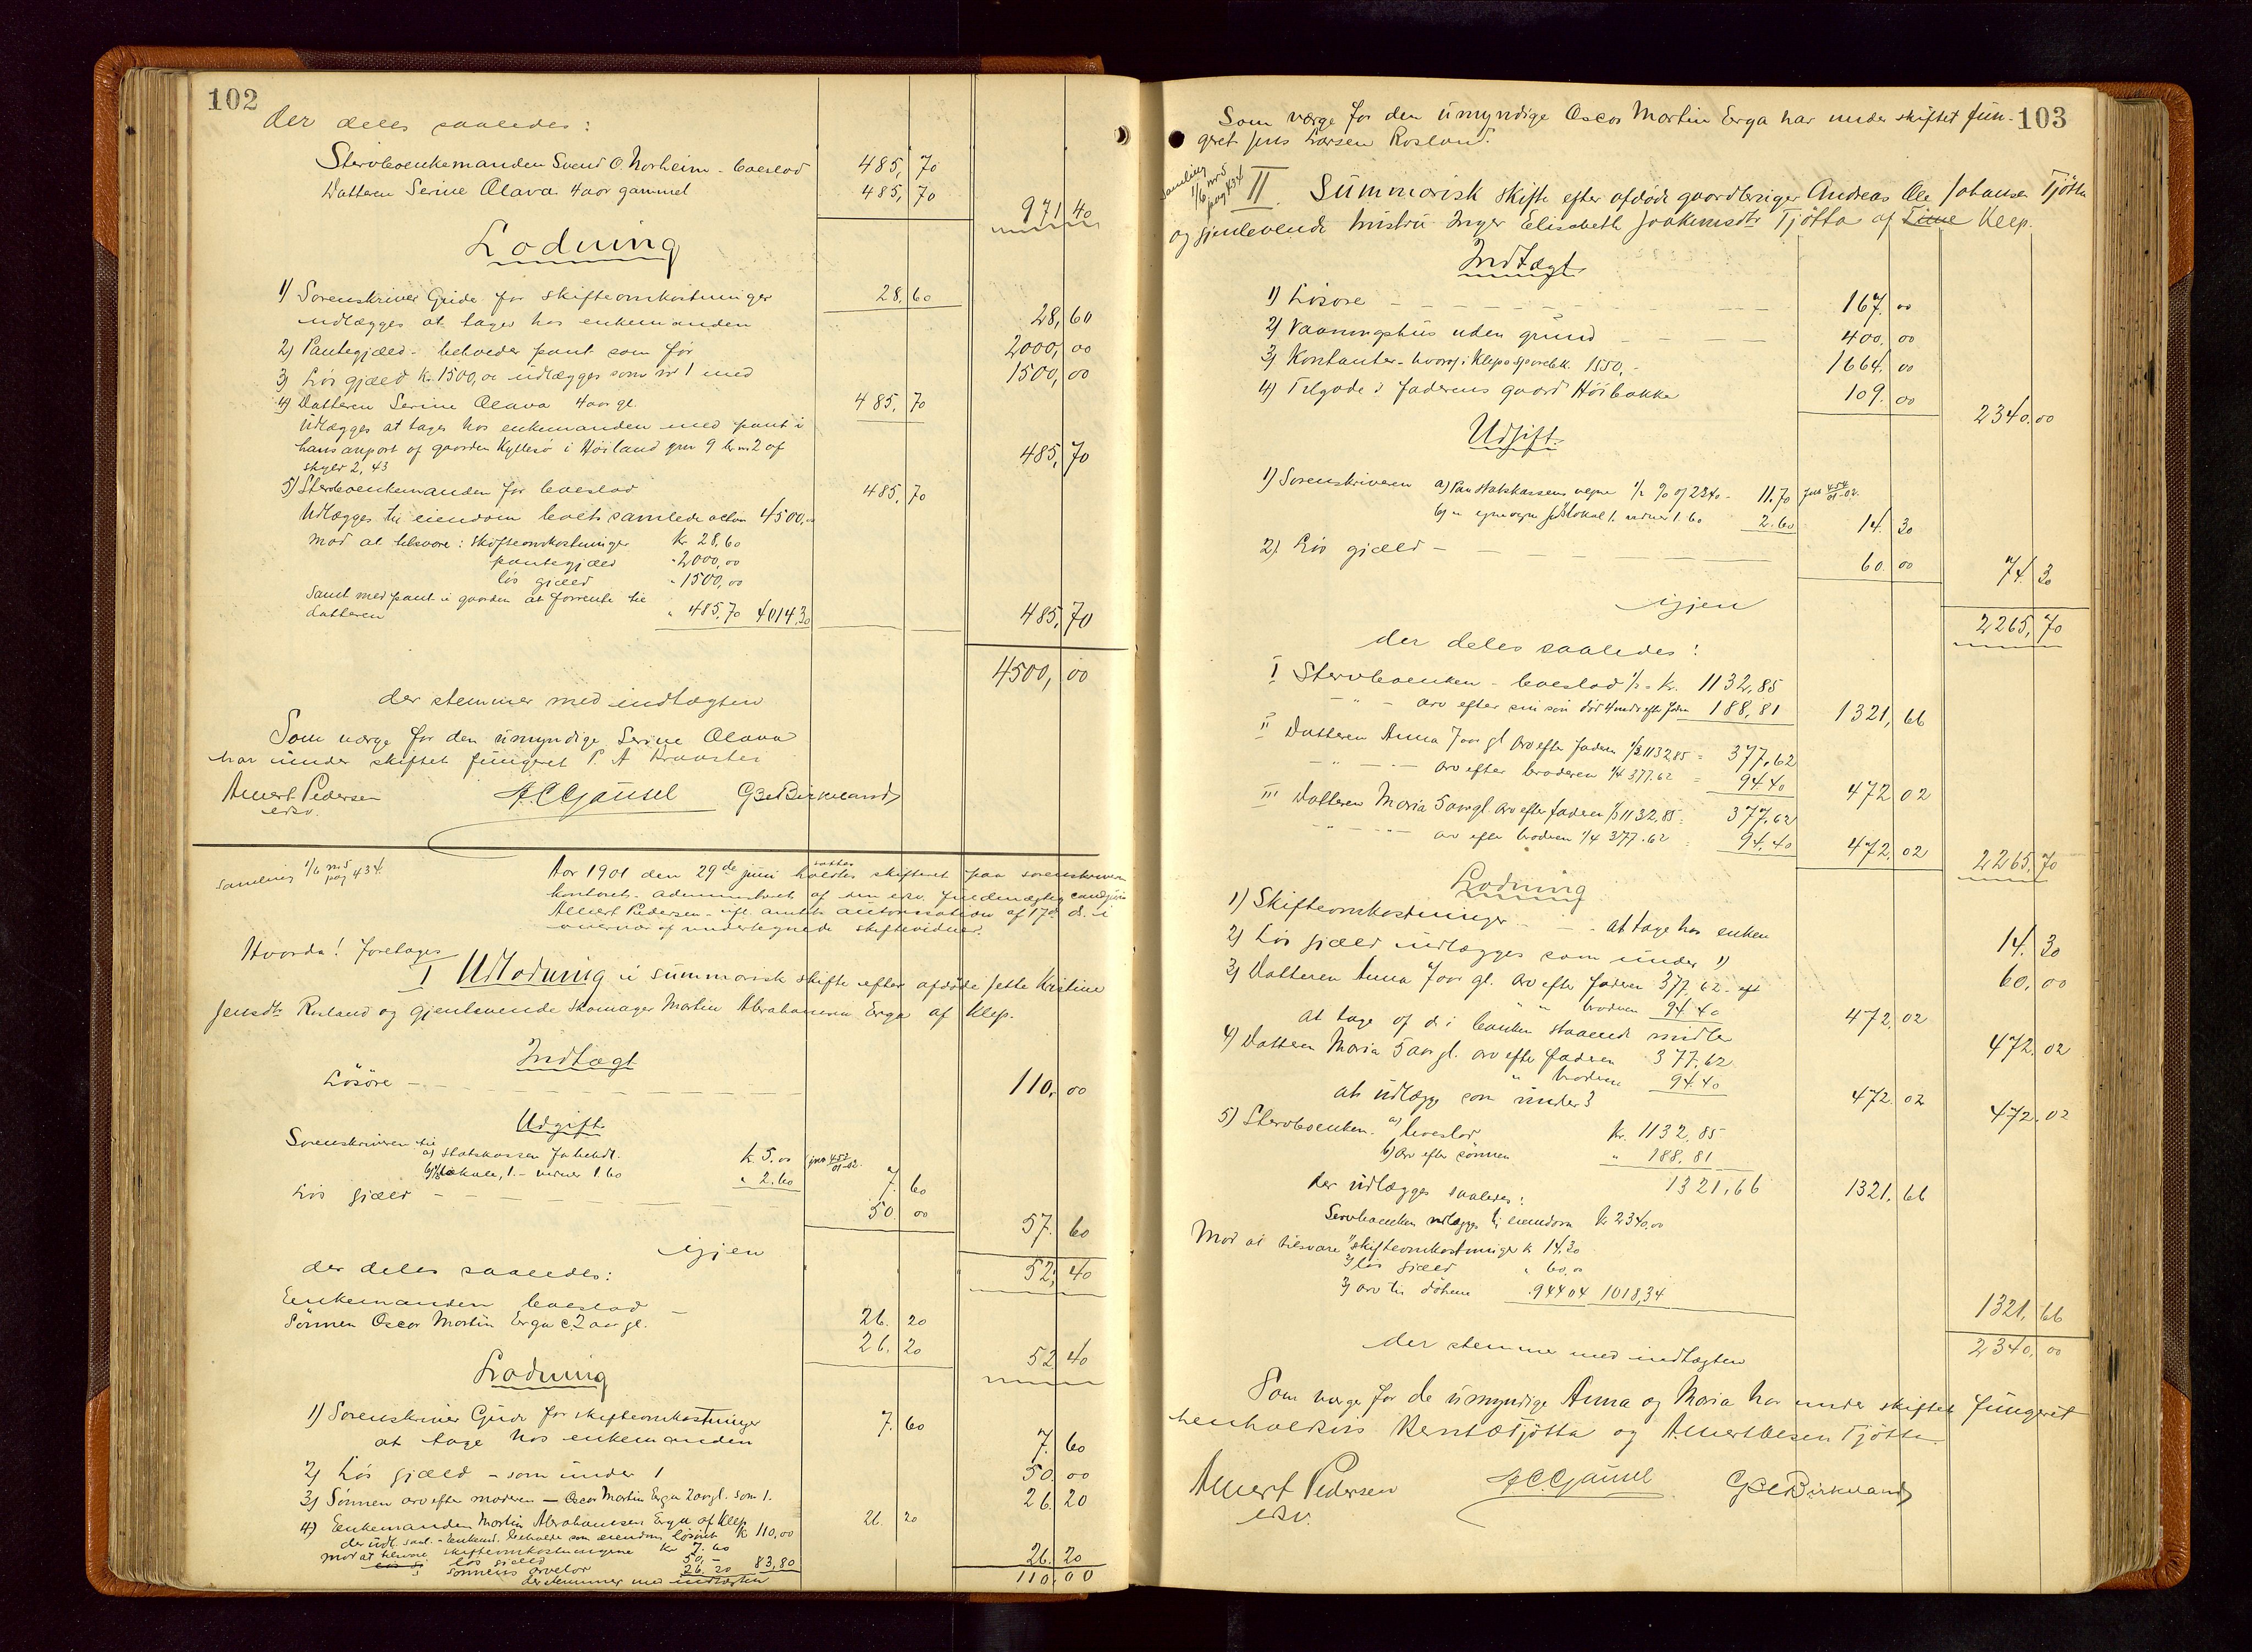 102
der deles saaledes:
Stervboenkemanden Svend O. Norheim - boeslod 485,70
Datteren Serine Olava 4 aar gammel 485,70
971 40
Lodning
1) Sorenskriver Gride for skifteomkostninger 28,60
udlægges at tages hos enkemanden 28,60
2) Pantegjæld - beholder pant som før 2000,00
3) Løs gjæld k. 1500,00 udlægges som no 1 med 1500,00
4) Datteren Serine Olava 4 aar gl. 485,70
Udlægges at tages hos enkemanden med pant i
hans anport af gaarden Kyllesø i Høiland gno 9 br no 2 af
skyld 2,43 485,70
5) Stervboenkemanden for boeslod 485,70
Udlægges til eiendom boets samlede activa 4500,00
Mod at tilsvare: skifteomkostninger kr 28,60
pantegjæld " 2000,00
løs gjæld " 1500,00
Samt med pant i gaarden at forrente til
datteren " 485,70 4014,30 485,70
4500,00
der stemmer med indtægten
Som værge for den umyndige Serine Olava
har under skiftet fungeret P. A
Amert Pedersen H.C. Gausel G Birkeland
edsv.
Samling 1/6 no 5 pag 434
Aar 1901 den 29de juni sattes skifteret paa sorenskriver
kontoret administreret af den edsv. fuldmægtig cand jur
Amert Pedersen - ifl. amtets autorisation af 17de d. i
overvær af undertegnede skiftevidner.
Hvorda! Foretoges
I Udlodning i summarisk skifte efter afdøde Jette Kristine
Jensdtr Rosland og gjenlevende skomager Martin Abrahamsen Erga af Klep.
Indtægt
Løsøre - 110,00
Udgift
Sorenskriveren til a) Statskassen for behdl. k. 5.00 jno 453/01-02.
b) Lokale, 1. - vidner 1.60 " 2.60 7. 60
Løs gjæld - 50 00
57. 60
igjen 52, 40
der deles saaledes:
Enkemanden boeslod - 26. 20
Sønnen Oscar Martin Erga c. 2 aar gl. 26. 20
52 40
Lodning
1) Sorenskriver Gride for skifteomkostninger 7. 60
at tage hos enkemanden 7. 60
2) Løs gjæld - som under 1 50. 00
3) Sønnen arv efter moderen - Oscar Martin Erga 2 aar gl. som 1. 26 20
4) Enkemanden Martin Abrahamsen Erga af Klep 26. 20
der udl. saal. - Enkemd. beholde som eiendom løsøret k 110,00
mod at tilsvare skifteomkostningerne kr 7. 60
løs gjæld 50, -
sønnens arvelod 26. 20 83,80 26. 20
der stemmer med indtægten 110,00
103
Som værge for den umyndige Oscar Martin Erga har under skiftet fun-
geret Jens Larsen Rosland.
Samling 1/6 no 5 pag 434
II. Summarisk skifte efter afdøde gaardbruger Andreas Ole Johansen Tjøtta
og gjenlevende hustru Inger Elisabeth Joakimsdtr Tjøtta af Time Klep.
Indtægt
1) Løsøre - 167. 00
2) Vaaningshus uden grund - 400. 00
3) Kontanter - hvoraf i Klepp sparebk. 1550, - 1664. 00
4) Tilgode i faderens gaard Høibakke 109. 00
2340.00
Udgift.
1) Sorenskriveren a) Paa statskassens vegne 1/2 % af 2340 - 11.70 jno 454/01-02.
b) " egne vegne lokal 1. vidner 1.60 2.60 14. 30
2) Løs gjæld - 60. 00 74. 30
igjen 2265, 70
der deles saaledes:
I Stervboenken - boeslod 1/2 = kr. 1132,85
" - arv efter sin søn død 4 mdr efter faderen 188,81 1321,66
II Datteren Anna 7 aar gl arv efter faderen 1/3 1132,85 = 377,62
- " - arv efter broderen 1/4 377.62 = 94 40 472 02
III Datteren Maria 5 aar gl. arv efter faderen 1/3 1132,85 = 377,62
- " - arv efter broderen 1/4 377.62 = 94.40 472, 02 2265,70
Lodning
1) Skifteomkostninger - at tage hos enken 14. 30
2) Løs gjæld udlægges som under 1) 60,00
3) Datteren Anna 7 aar gl. arv efter faderen 377,62
" broderen 94 40 472, 02
at tage af de i banken staaende midler 472. 02
4) Datteren Maria 5 aar gl. arv efter faderen 377,62
" broderen 94.40 472. 02
at udlægge som under 3 472. 02
5) Stervboenken. a) boeslod kr. 1132,85
b) arv efter sønnen " 188,81
1321,66 1321.66
der udlægges saaledes:
Stervboenken udlægges til eiendom kr 2340,00
Mod at tilsvare 1) skifteomkostninger k 14,30
2) løs gjæld " 60,00
3) arv til døtrene 944 04 1018,34
1321,66
der stemmer med indtægten 2340,00
Som værge for de umyndige Anna og Maria har under skiftet fungeret
henholdsvis Tjøtta og Tjøtta.
Amert Pedersen H.C. Gausel G Birkeland
edsv.